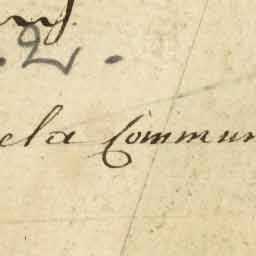 .2.
ela Commun